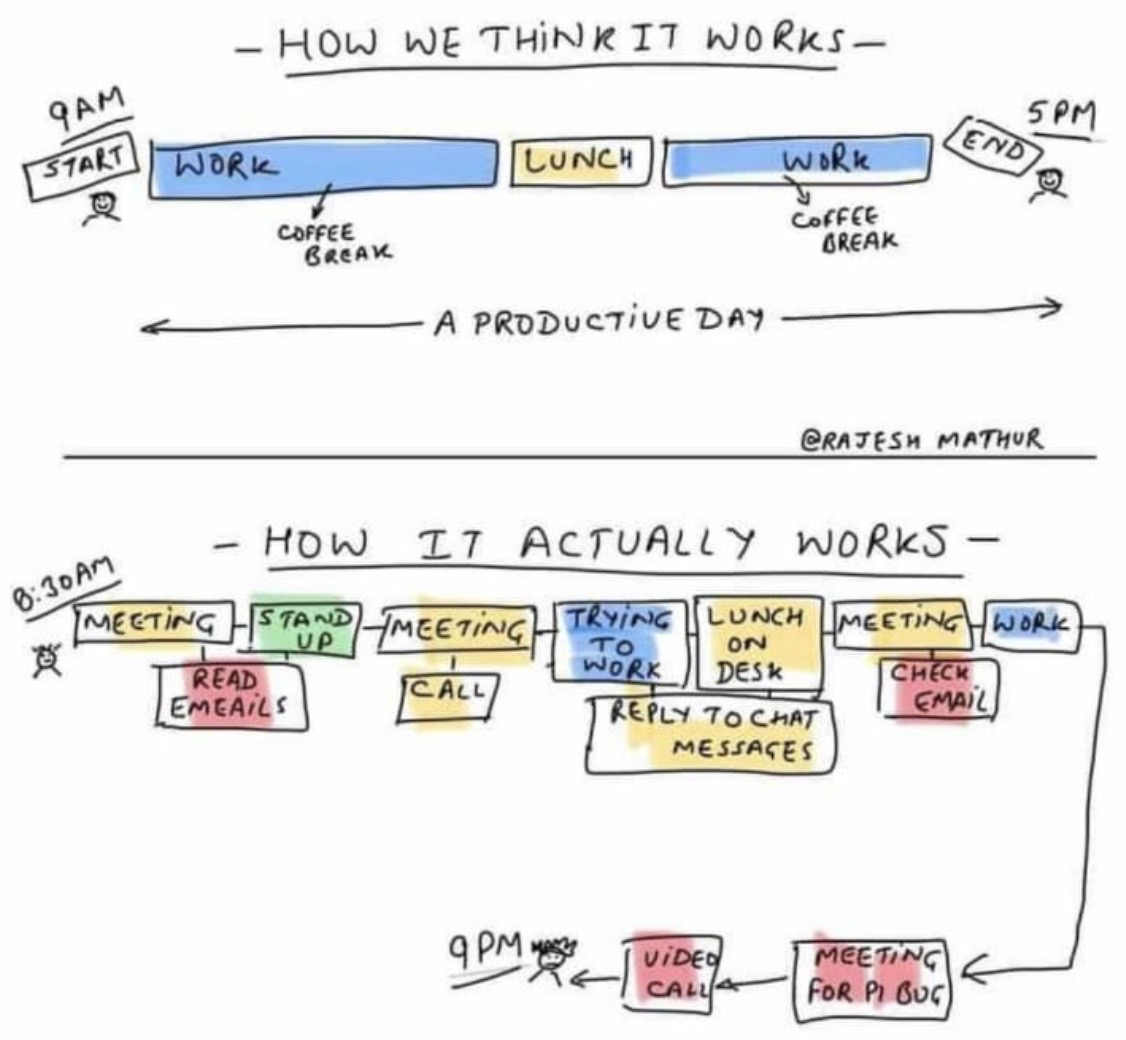 - HOW WE THINK IT WORKS -
9AM
START
WORK
LUNCH
WORK
END
5PM
COFFEE
BREAK
COFFEE
BREAK
A PRODUCTIVE DAY
@RAJESH MATHUR
- HOW IT ACTUALLY WORKS -
8:30AM
MEETING
READ
EMEAILS
STAND
UP
MEETING
CALL
TRYING
TO
WORK
LUNCH
ON
DESK
REPLY TO CHAT
MESSAGES
MEETING
CHECK
EMAIL
WORK
MEETING
FOR P1 BUG
VIDEO
CALL
9PM